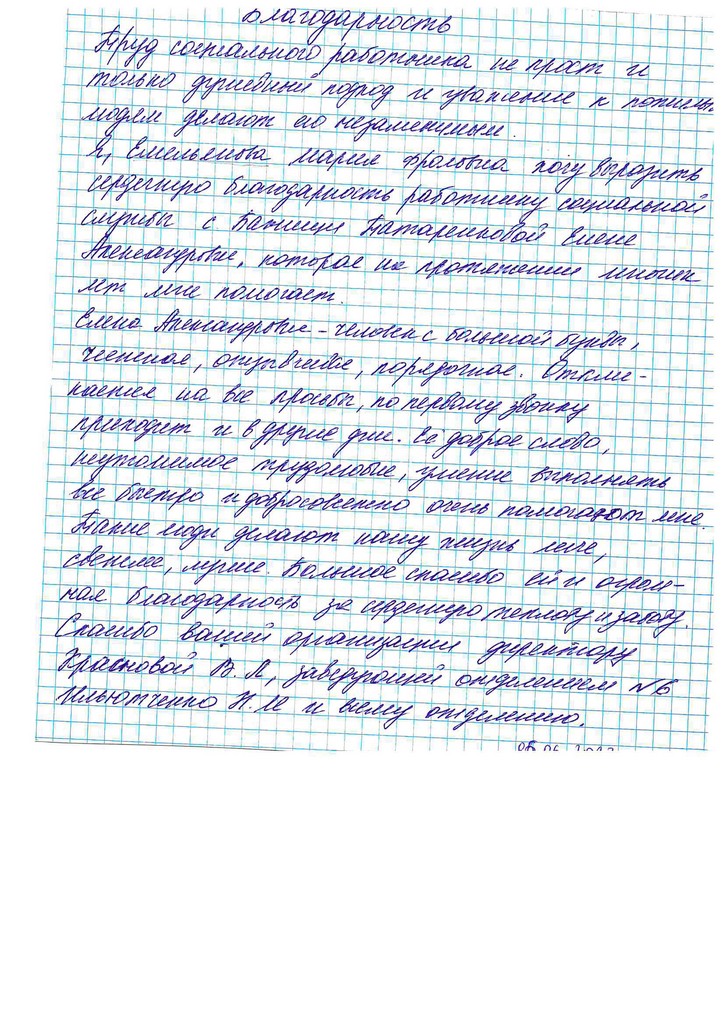 Благодарность
Труд социального работника не прост и
только душевный подход и уважение к пожилым
людям делают его незаменимым.
Я, Емельянова Мария Фроловна хочу выразить
сердечную благодарность работнику социальной
службы с Бажиган Татаренковой Елене
Александровне, которая на протяжении многих
лет мне помогает.
Елена Александровна - человек с большой буквы,
честная, отзывчивая, порядочная. Откли-
кается на все просьбы, по первому звонку
приходит и в другие дни. Её доброе слово,
неутомимое трудолюбие, умение выполнять
все быстро и добросовестно очень помогают мне.
Такие люди делают нашу жизнь легче,
светлее, лучше. Большое спасибо ей и огром-
ная благодарность за сердечную теплоту и заботу.
Спасибо вашей организации директору
Красновой В. А, заведующей отделением №6
Ильютченко Н. М и всему отделению.